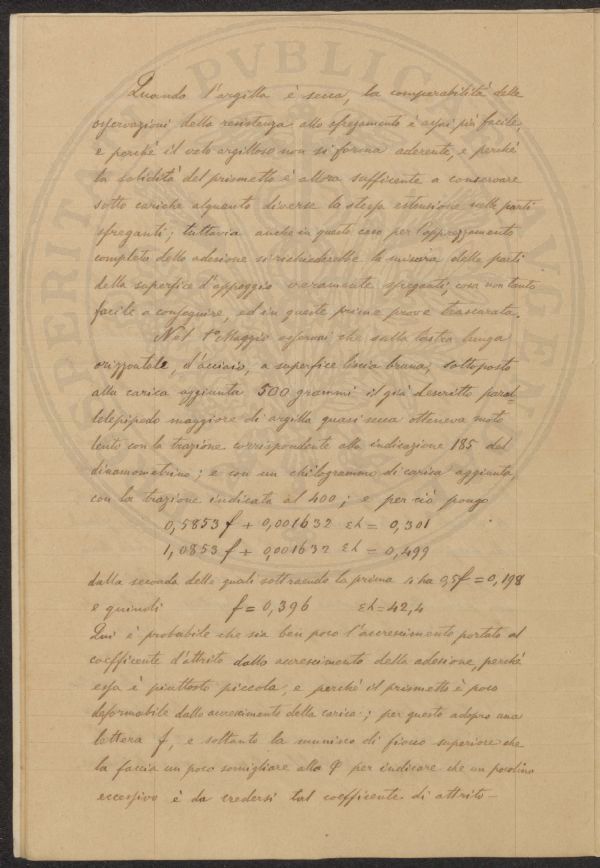 Quando l'argilla è secca, la comparabilità delle
osservazioni della resistenza allo sfregamento è assai più facile,
e perchè il velo argilloso non si forma aderente, e perchè
la solidità del prismetto è allora sufficente a conservare
sotto cariche alquanto diverse la stessa estensione nelle parti
sfreganti; tuttavia anche in questo caso per l'apprezzamento
completo della adesione si richiederebbe la misura delle parti
della superfice d'appoggio veramente sfreganti, cosa non tanto
facile a conseguire, ed in queste prime prove trascurata.
Nel 1° Maggio osservai che sulla lastra lunga
orizzontale, d'acciaio, a superfice liscia bruna, sottoposto
alla carica aggiunta 500 grammi il già descritto paral-
lelepipedo maggiore di argilla quasi secca otteneva moto
lento con la trazione corrispondente alla indicazione 185 del
dinamometrino; e con un chilogrammo di carica aggiunta,
con la trazione indicata al 400; e per ciò pongo
0,5853 f + 0,001632 εh = 0,301
1,0853 f + 0,001632 εh = 0,499
dalla seconda delle quali sottraendo la prima si ha 0,5f = 0,198
e quindi f = 0,396 εh = 42,4
Qui è probabile che sia ben poco l'accrescimento portato al
coefficente d'attrito dallo accrescimento della adesione, perchè
essa è piuttosto piccola, e perchè il prismetto è poco
deformabile dallo accrescimento della carica; per questo adopro una
lettera f, e soltanto la munisco di fiocco superiore che
la faccia un poco somigliare alla φ per indicare che un pocolino
eccessivo è da credersi tal coefficente di attrito –
SPERITAS PVBLICA AVGENDA